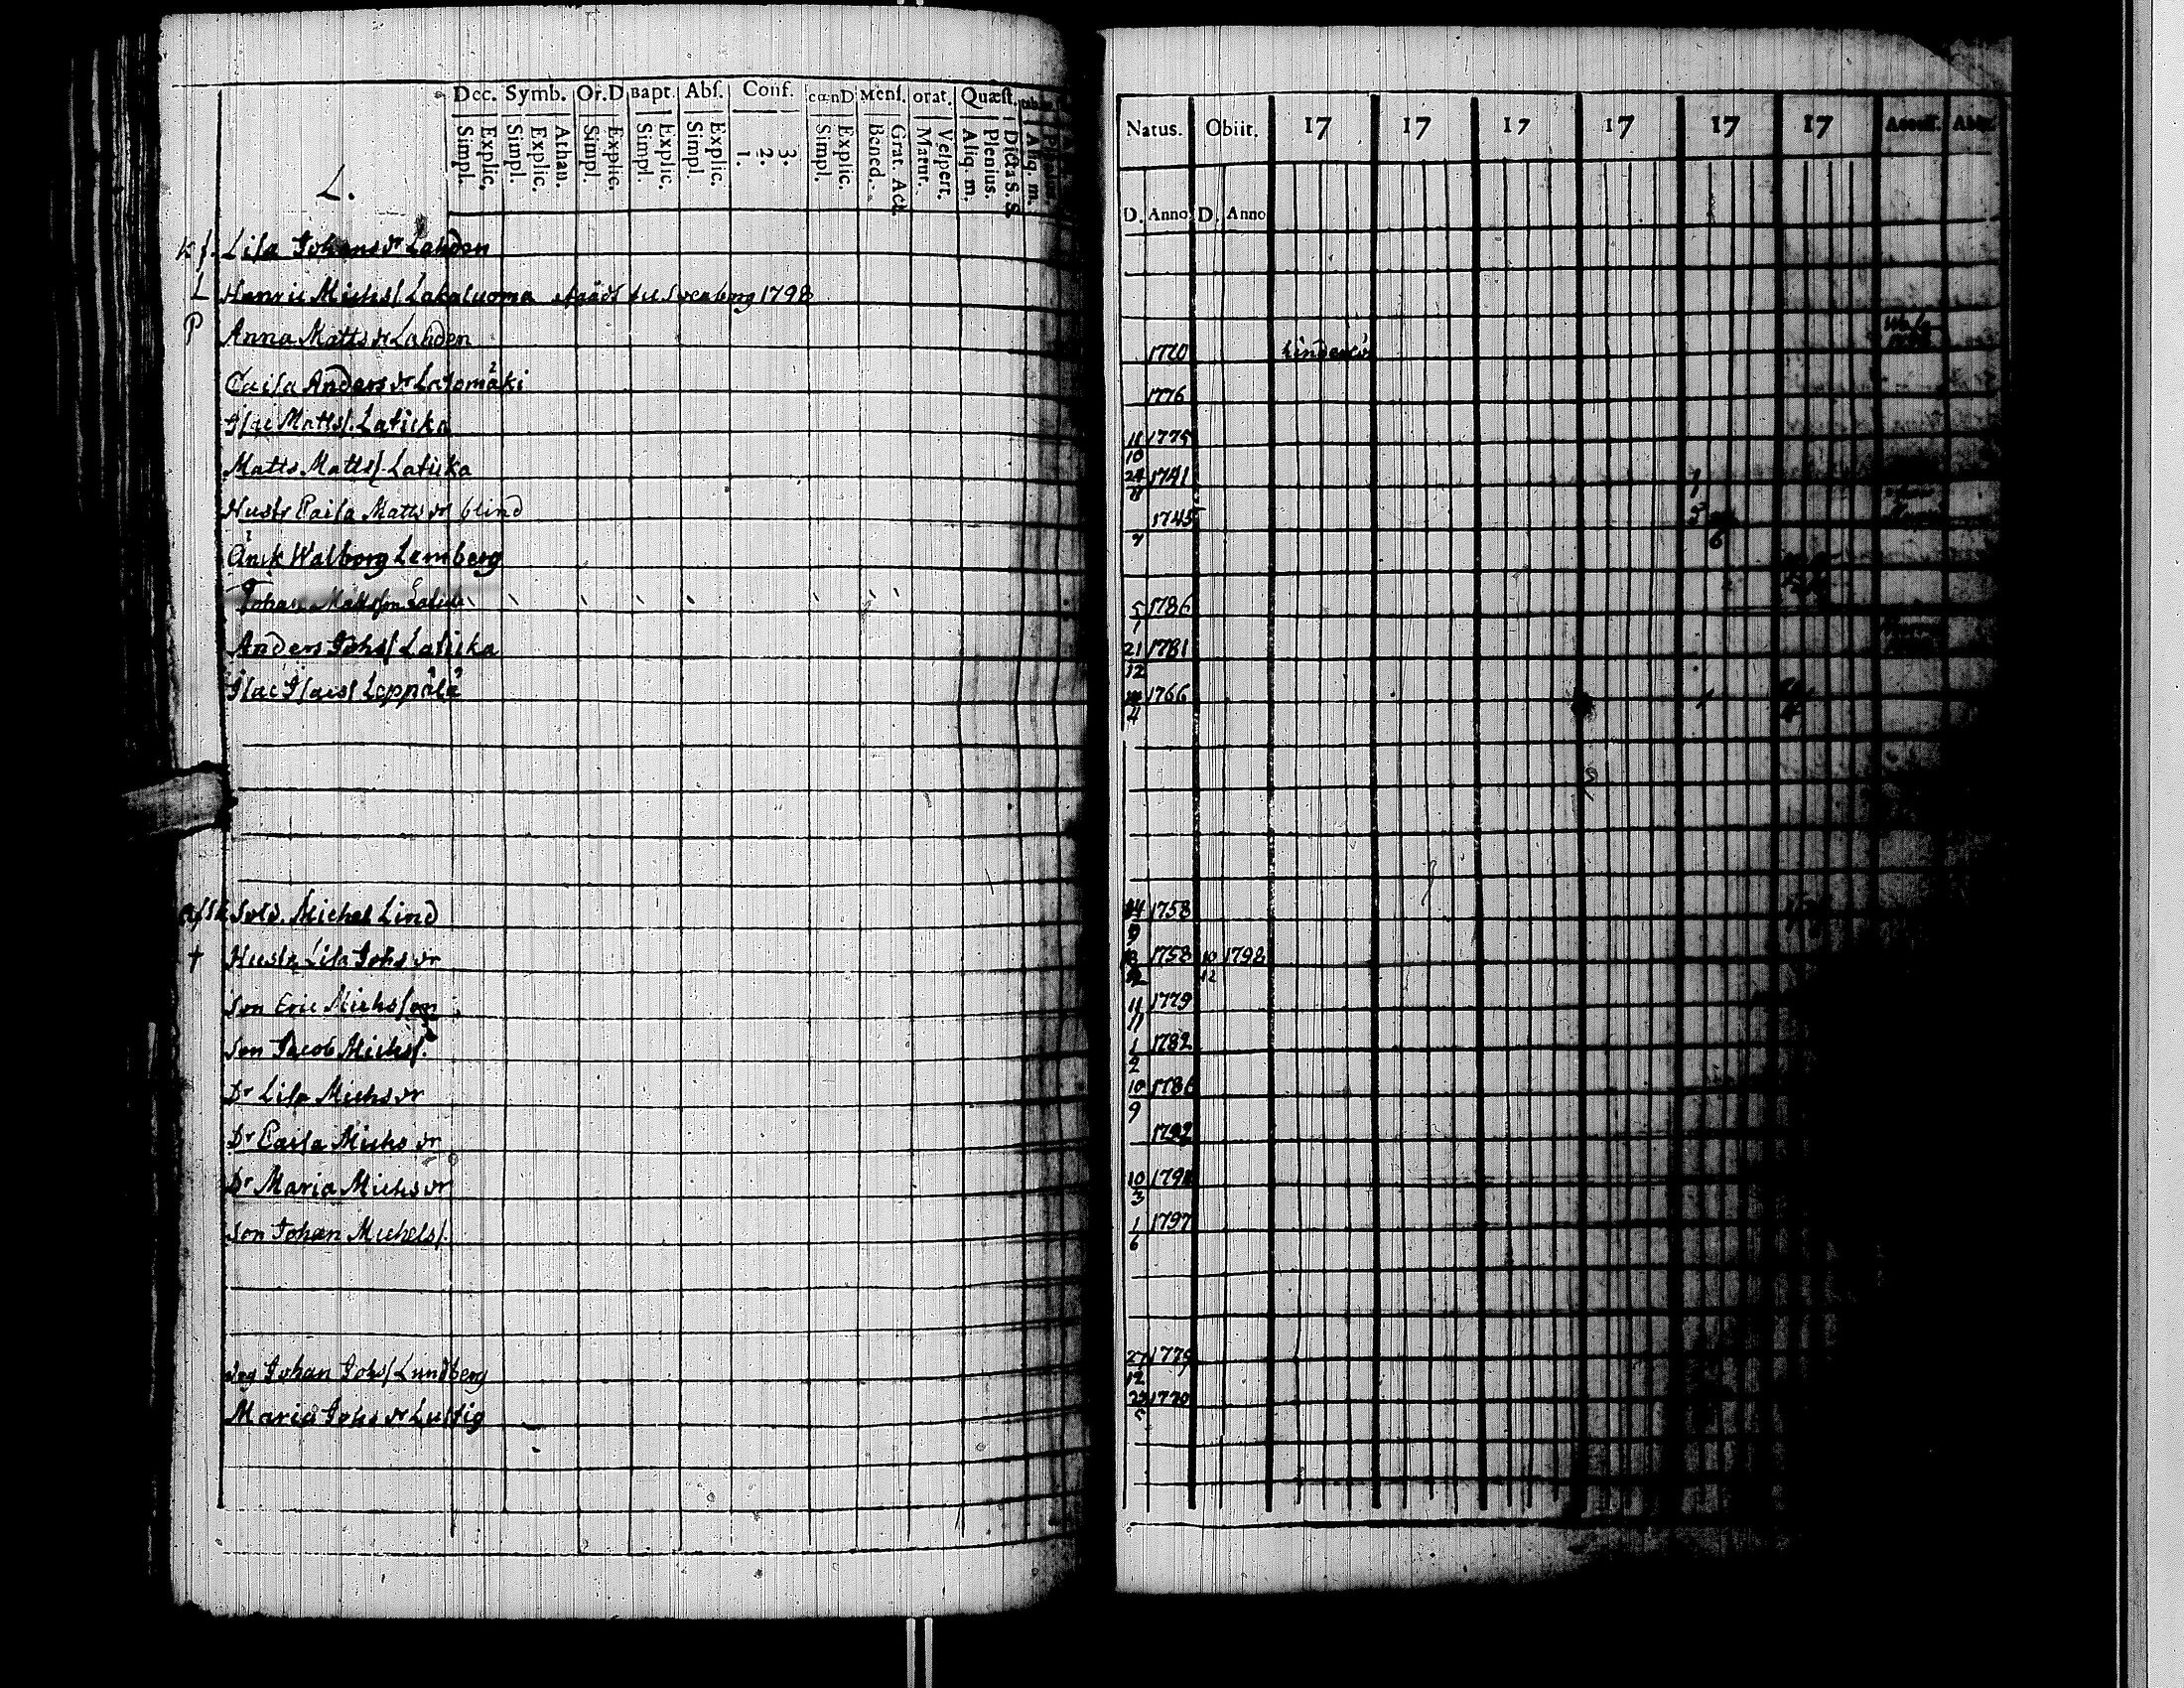 Dec. Symb. Or.D Bapt. Abs. Conf. cœnD Mens. orat. Quæst.
Simpl. Explic. Simpl. Explic. Athan. Simpl. Explic. Simpl. Explic. Simpl. Explic. 1. 2. 3. Simpl. Explic. Bened. Grat. Act Matut. Vespert. Aliq. m. Plenius. Dicta S. S. Aliq. m.
Natus. Obiit. 17 17 17 17 17 17 Access. Abit.
D. Anno D. Anno
L.
Lisa Johans dr Lahden
L Hanric Michs/ Lakaluoma 1798
P Anna Matts dr Lahden 1720
Caisa Anders dr Latomäki 1776
Isac Matts/. Laticka 11 10 1775
Matts Matts/. Laticka 24 8 1741
Hustr Caisa Matts dr blind 1745
Änk Walborg Lemberg 7
Johan Mattsson 5 1 1786
Anders Johs/ Laticka 21 12 1781
Isac Isacs/ Leppälä 4 1766
Sold. Michel Lind 14 9 1758
† Hustr Lisa Johs dr 12 1758 10 12 1798
Son Eric Michsson 11 11 1779
Son Jacob Michs/. 1 2 1782
Dr Lisa Michs dr 10 9 1786
Dr Caisa Michs dr 1792
Dr Maria Michs dr 10 3 1791
Son Johan Michels/. 1 6 1797
Johan Johs/ Lundberg 27 12 1775
Maria Johs dr Lustig 5 1770